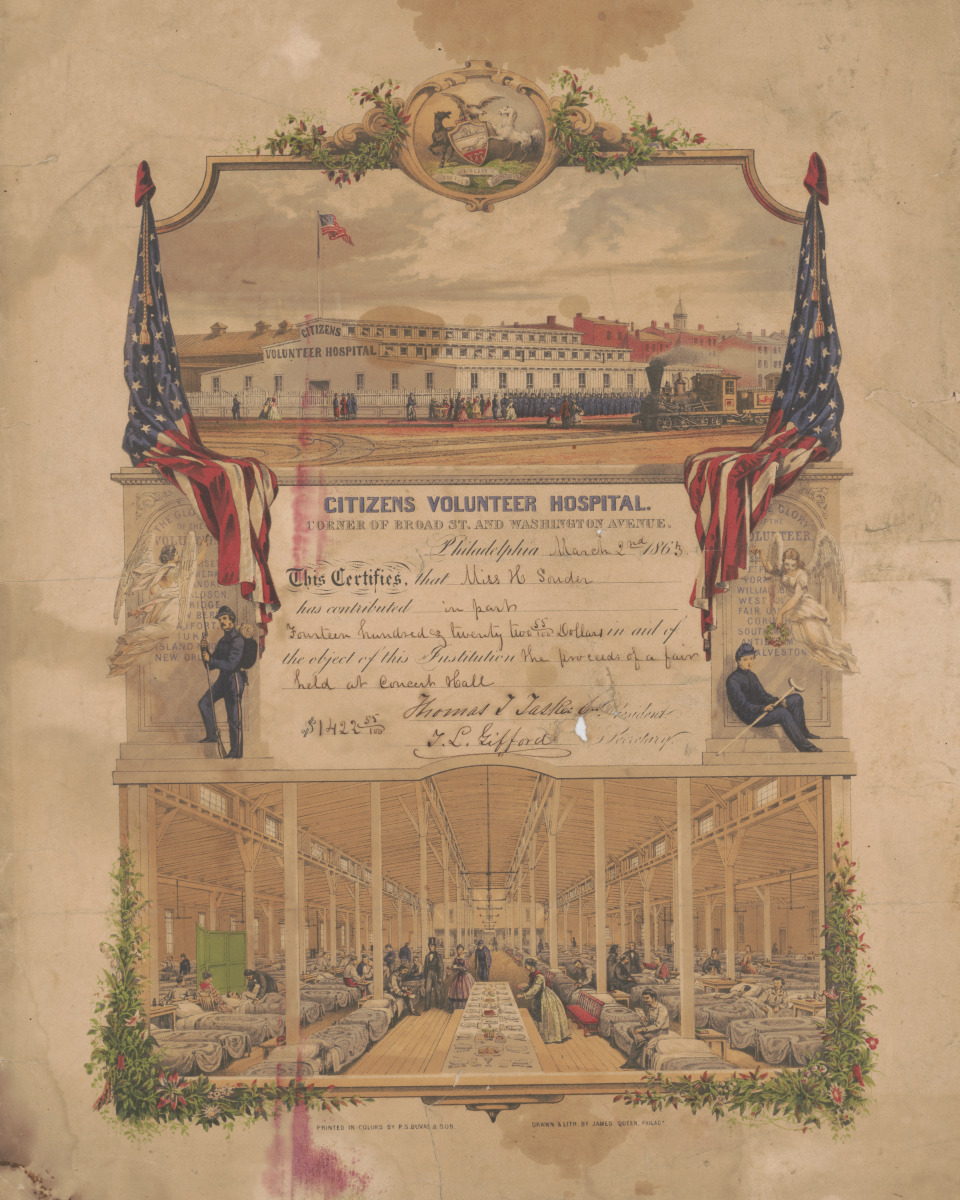 CITIZENS
VOLUNTEER HOSPITAL
CITIZENS VOLUNTEER HOSPITAL.
CORNER OF BROAD ST. AND WASHINGTON AVENUE.
Philadelphia March 2nd 1863
This Certifies, that Miss H Souder
has contributed in part
Fourteen hundred & twenty two 55/100 Dollars in aid of
the object of this Institution the proceeds of a fair
held at Concert Hall
Thomas T Tasker President
$1422 55/100
T. L. Gifford Secretary
THE GLORY
OF THE
ISLAND
NEW
GLORY
OF THE
VOLUNTEER
WEST
FAIR
GALVESTON
PRINTED IN COLORS BY P.S. DUVAL & SON.
DRAWN & LITH. BY JAMES QUEEN, PHILADA